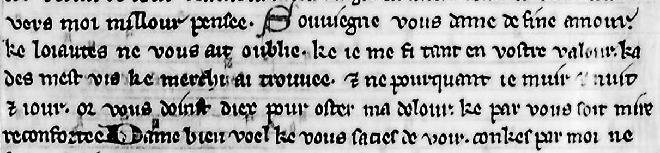 vers moi millour pensee. Souviegne vous dame de fine amour.
ke loiautes ne vous ait oublie. ke ie me fi tant en vostre valour. ka
des mest vis ke merchi ai trouuee. ⁊ ne pourquant ie muir nuit
⁊ iour. or vous doinst diex pour oster ma dolour. ke par vous soit mire
reconfortee Dame bien voel ke vous sacies de voir. conkes par moi ne